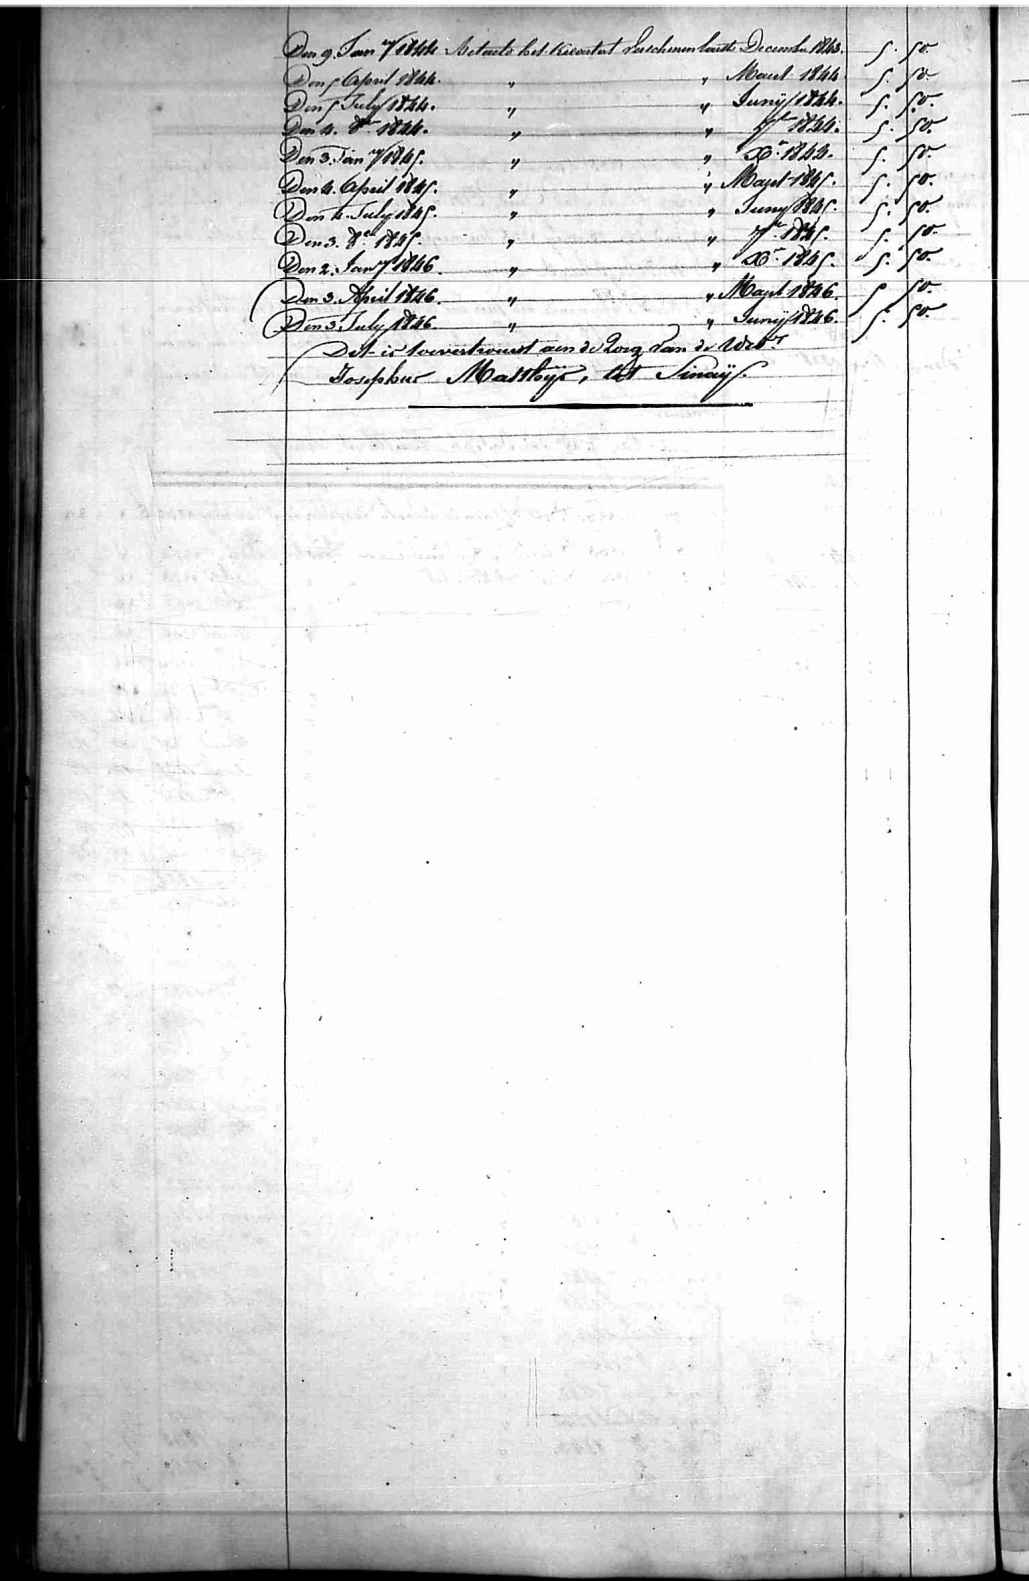 Den 9. Jan ry 1844 betaelt het kwartael verschenen laeste December 1843. 5. 50.
Den 5 April 1844. " " Maert 1844 5. 50
Den 5 July 1844. " " Junij 1844. 5. 50.
Den 4. 8er 1844. " " 7er 1844. 5. 50.
Den 3. Jan ry 1845. " " Xr. 1844. 5. 50.
Den 4. April 1845. " " Maert 1845. 5. 50.
Den 4. July 1845. " " Juny 1845. 5. 50.
Den 3. 8er 1845. " " 7er 1845. 5. 50.
Den 2. Jan ry 1846. " " Xr. 1845. 5. 50.
Den 3. April 1846. " " Maert 1846. 5 50.
Den 3. July 1846. " " Junij 1846. 5. 50.
Dit is toevertrouwt aen de Zorg van de Wede
Josephus Matthijs, tot Sinaij.